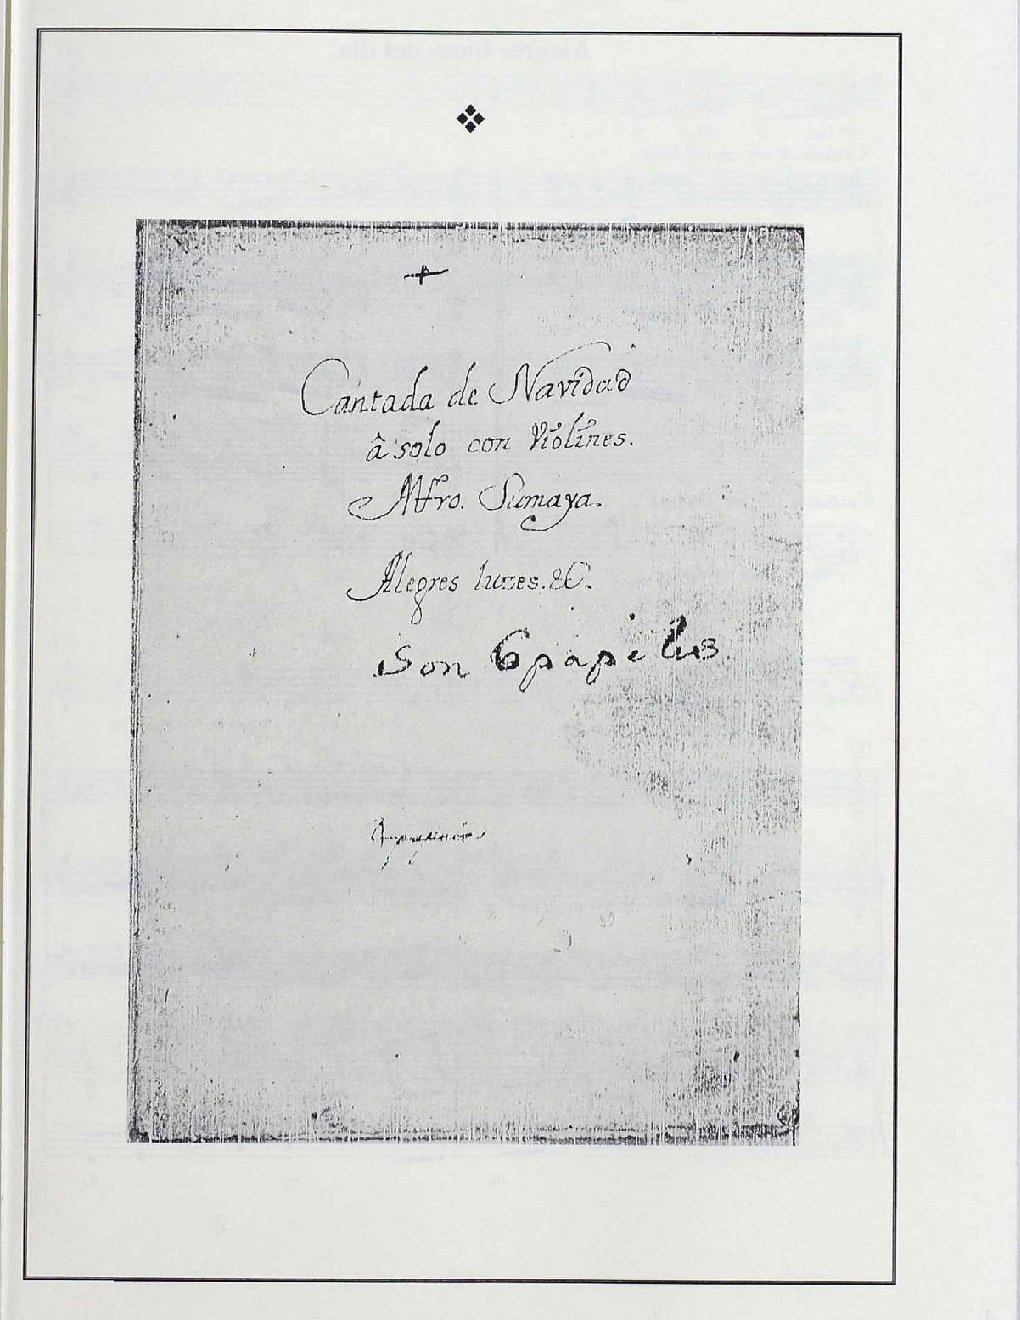 Cantada de Navidad
â solo con Violines.
Mtro. Sumaya.
Alegres luzes. &C.
Son 6 papeles